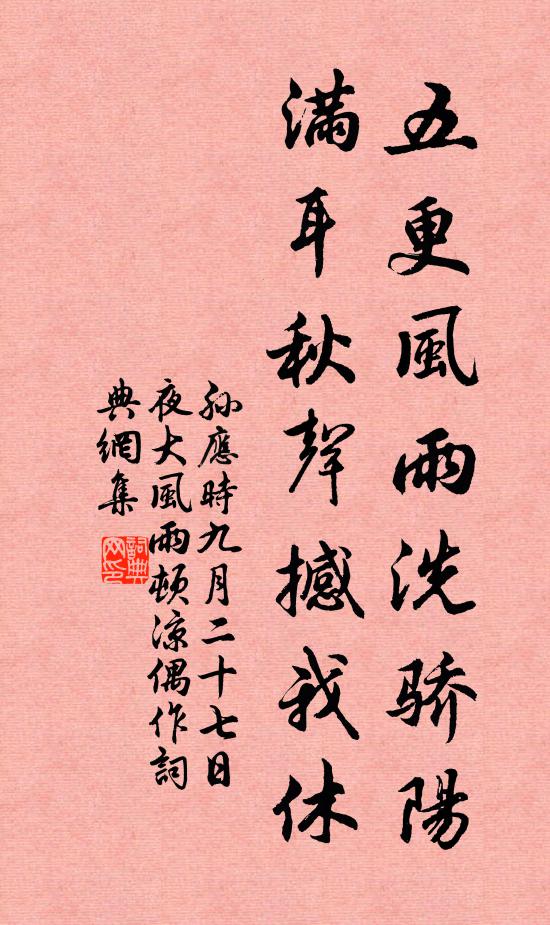 五更風雨洗骄陽
滿耳秋聲撼我休
孫應時九月二十七日
夜大風雨頓涼偶作詞
典網集
詞典
网印